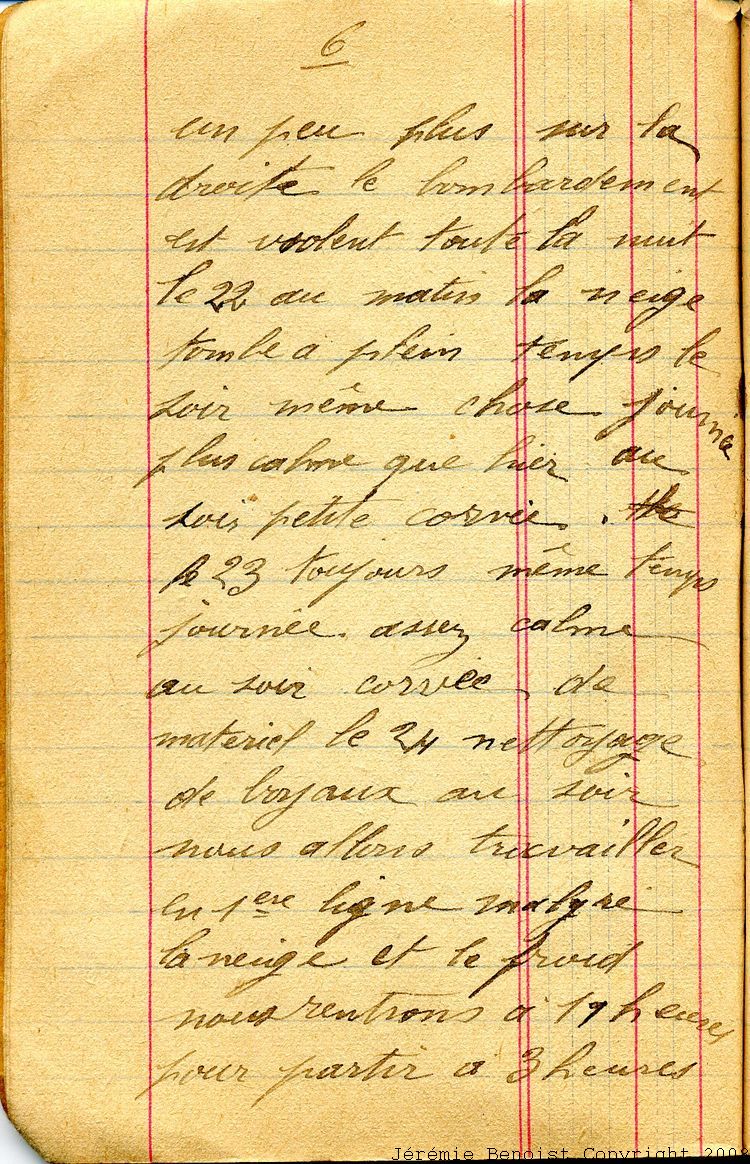 6
un peu plus sur la
droite le bombardement
est violent toute la nuit
le 22 au matin la neige
tombe a plein temps le
soir même chose journée
plus calme que hier au
soir petite corvée.
le 23 toujours même temps
journée. assez calme
au soir corvée de
materiel le 24 nettoyage
de boyaux au soir
nous allons travailler
en 1ere ligne malgré
la neige et le froid
nous rentrons à 19 heures
pour partir a 3 heures
Jérémie Benoist Copyright 200